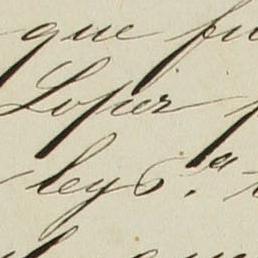 que fu
Lopez p
ley 6.ª